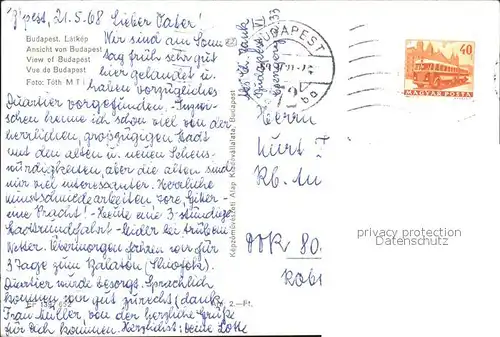 B'pest, 21.5.68 Lieber Vater!
Budapest. Látkép
Ansicht von Budapest
View of Budapest
Vue de Budapest
Foto: Tóth M T I
Wir sind am Sonn
tag früh sehr gut
hier gelandet u.
haben vorzügliches
Quartier vorgefunden. Inzwi-
schen kenne ich schon viel von der
herrlichen, großzügigen Stadt
mit den alten u. neuen Sehens-
würdigkeiten aber die alten sind
mir viel interessanter. Herrliche
Kunstschmiedearbeiten Tore, Gitter -
eine Pracht! - Heute eine 3-stündige
Stadtrundfahrt - leider bei trübem
Wetter. Übermorgen fahren wir für
3 Tage zum Balaton (Shiofok).
Quartier wurde besorgt. Sprachlich
kommen wir gut zurecht (dank
Frau Müller, von der herzliche Grüße
für Dich kommen. Herzlichst: Deine Lotte
Képzőművészeti Alap Kiadóvállalata, Budapest
Ára: 2.-Ft.
Budapest VI
BUDAPEST
40
MAGYAR POSTA
Herrn
Kurt
80
privacy protection
Datenschutz